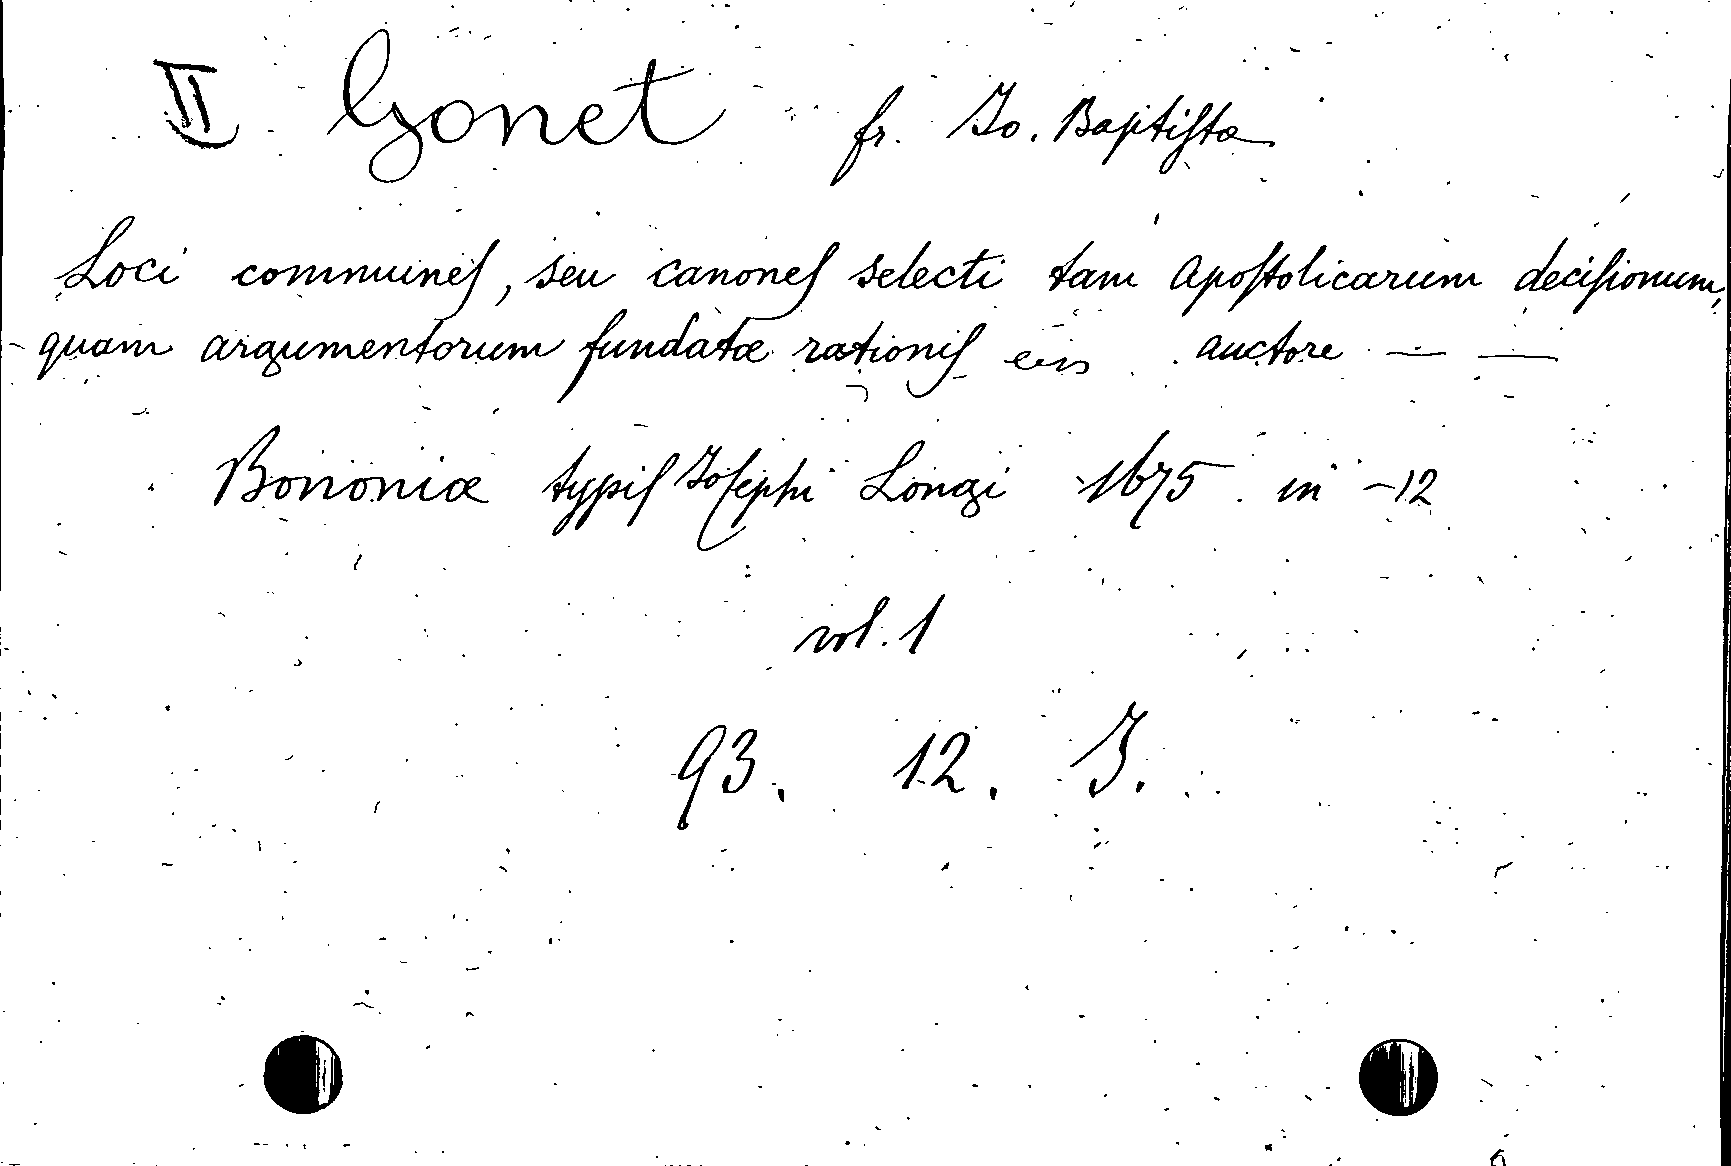 II Gonet fr. Jo. Baptista
Loci communes, seu canones selecti tam Apostolicarum decisionum,
quam argumentorum fundatæ rationis auctore — —
Bononiæ typis Josephi Longi 1675 in -12
vol. 1
93. 12. J.